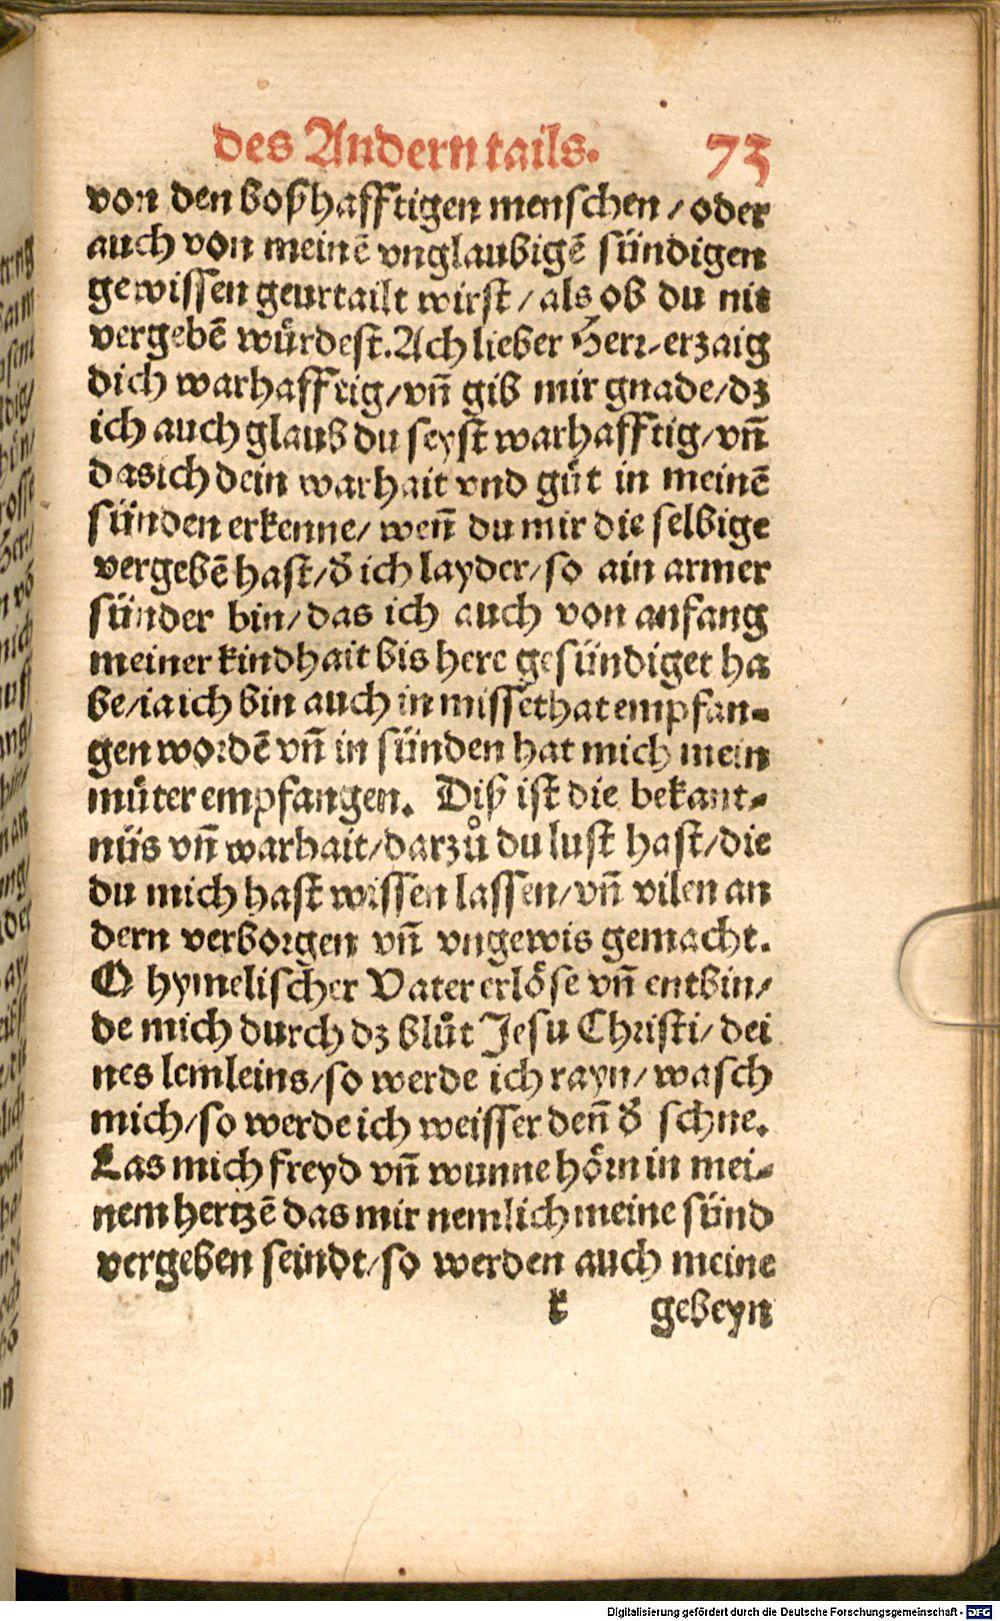 des Andern tails. 73
von den boßhafftigen menschen / oder
auch von meinē vnglaubigē sündigen
gewissen geurtailt wirst / als ob du nit
vergebē würdest. Ach lieber Herr / erzaig
dich warhafftig / vñ gib mir gnade / dz
ich auch glaub du seyst warhafftig / vñ
das ich dein warhait vnd gůt in meinē
sünden erkenne / weñ du mir die selbige
vergebē hast / d̄ ich layder / so ain armer
sünder bin / das ich auch von anfang
meiner kindhait bis here gesündiget ha
be / ia ich bin auch in missethat empfan-
gen wordē vñ in sünden hat mich mein
můter empfangen. Diß ist die bekant-
nüs vñ warhait / darzů du lust hast / die
du mich hast wissen lassen / vñ vilen an
dern verborgen vñ vngewis gemacht.
O hymelischer Vater erlöse vñ entbin /
de mich durch dz blůt Jesu Christi / dei
nes lemleins / so werde ich rayn / wasch
mich / so werde ich weisser deñ d̄ schne.
Las mich freyd vñ wunne hörn in mei-
nem hertzē das mir nemlich meine sünd
vergeben seindt / so werden auch meine
k gebeyn
Digitalisierung gefördert durch die Deutsche Forschungsgemeinschaft - DFG